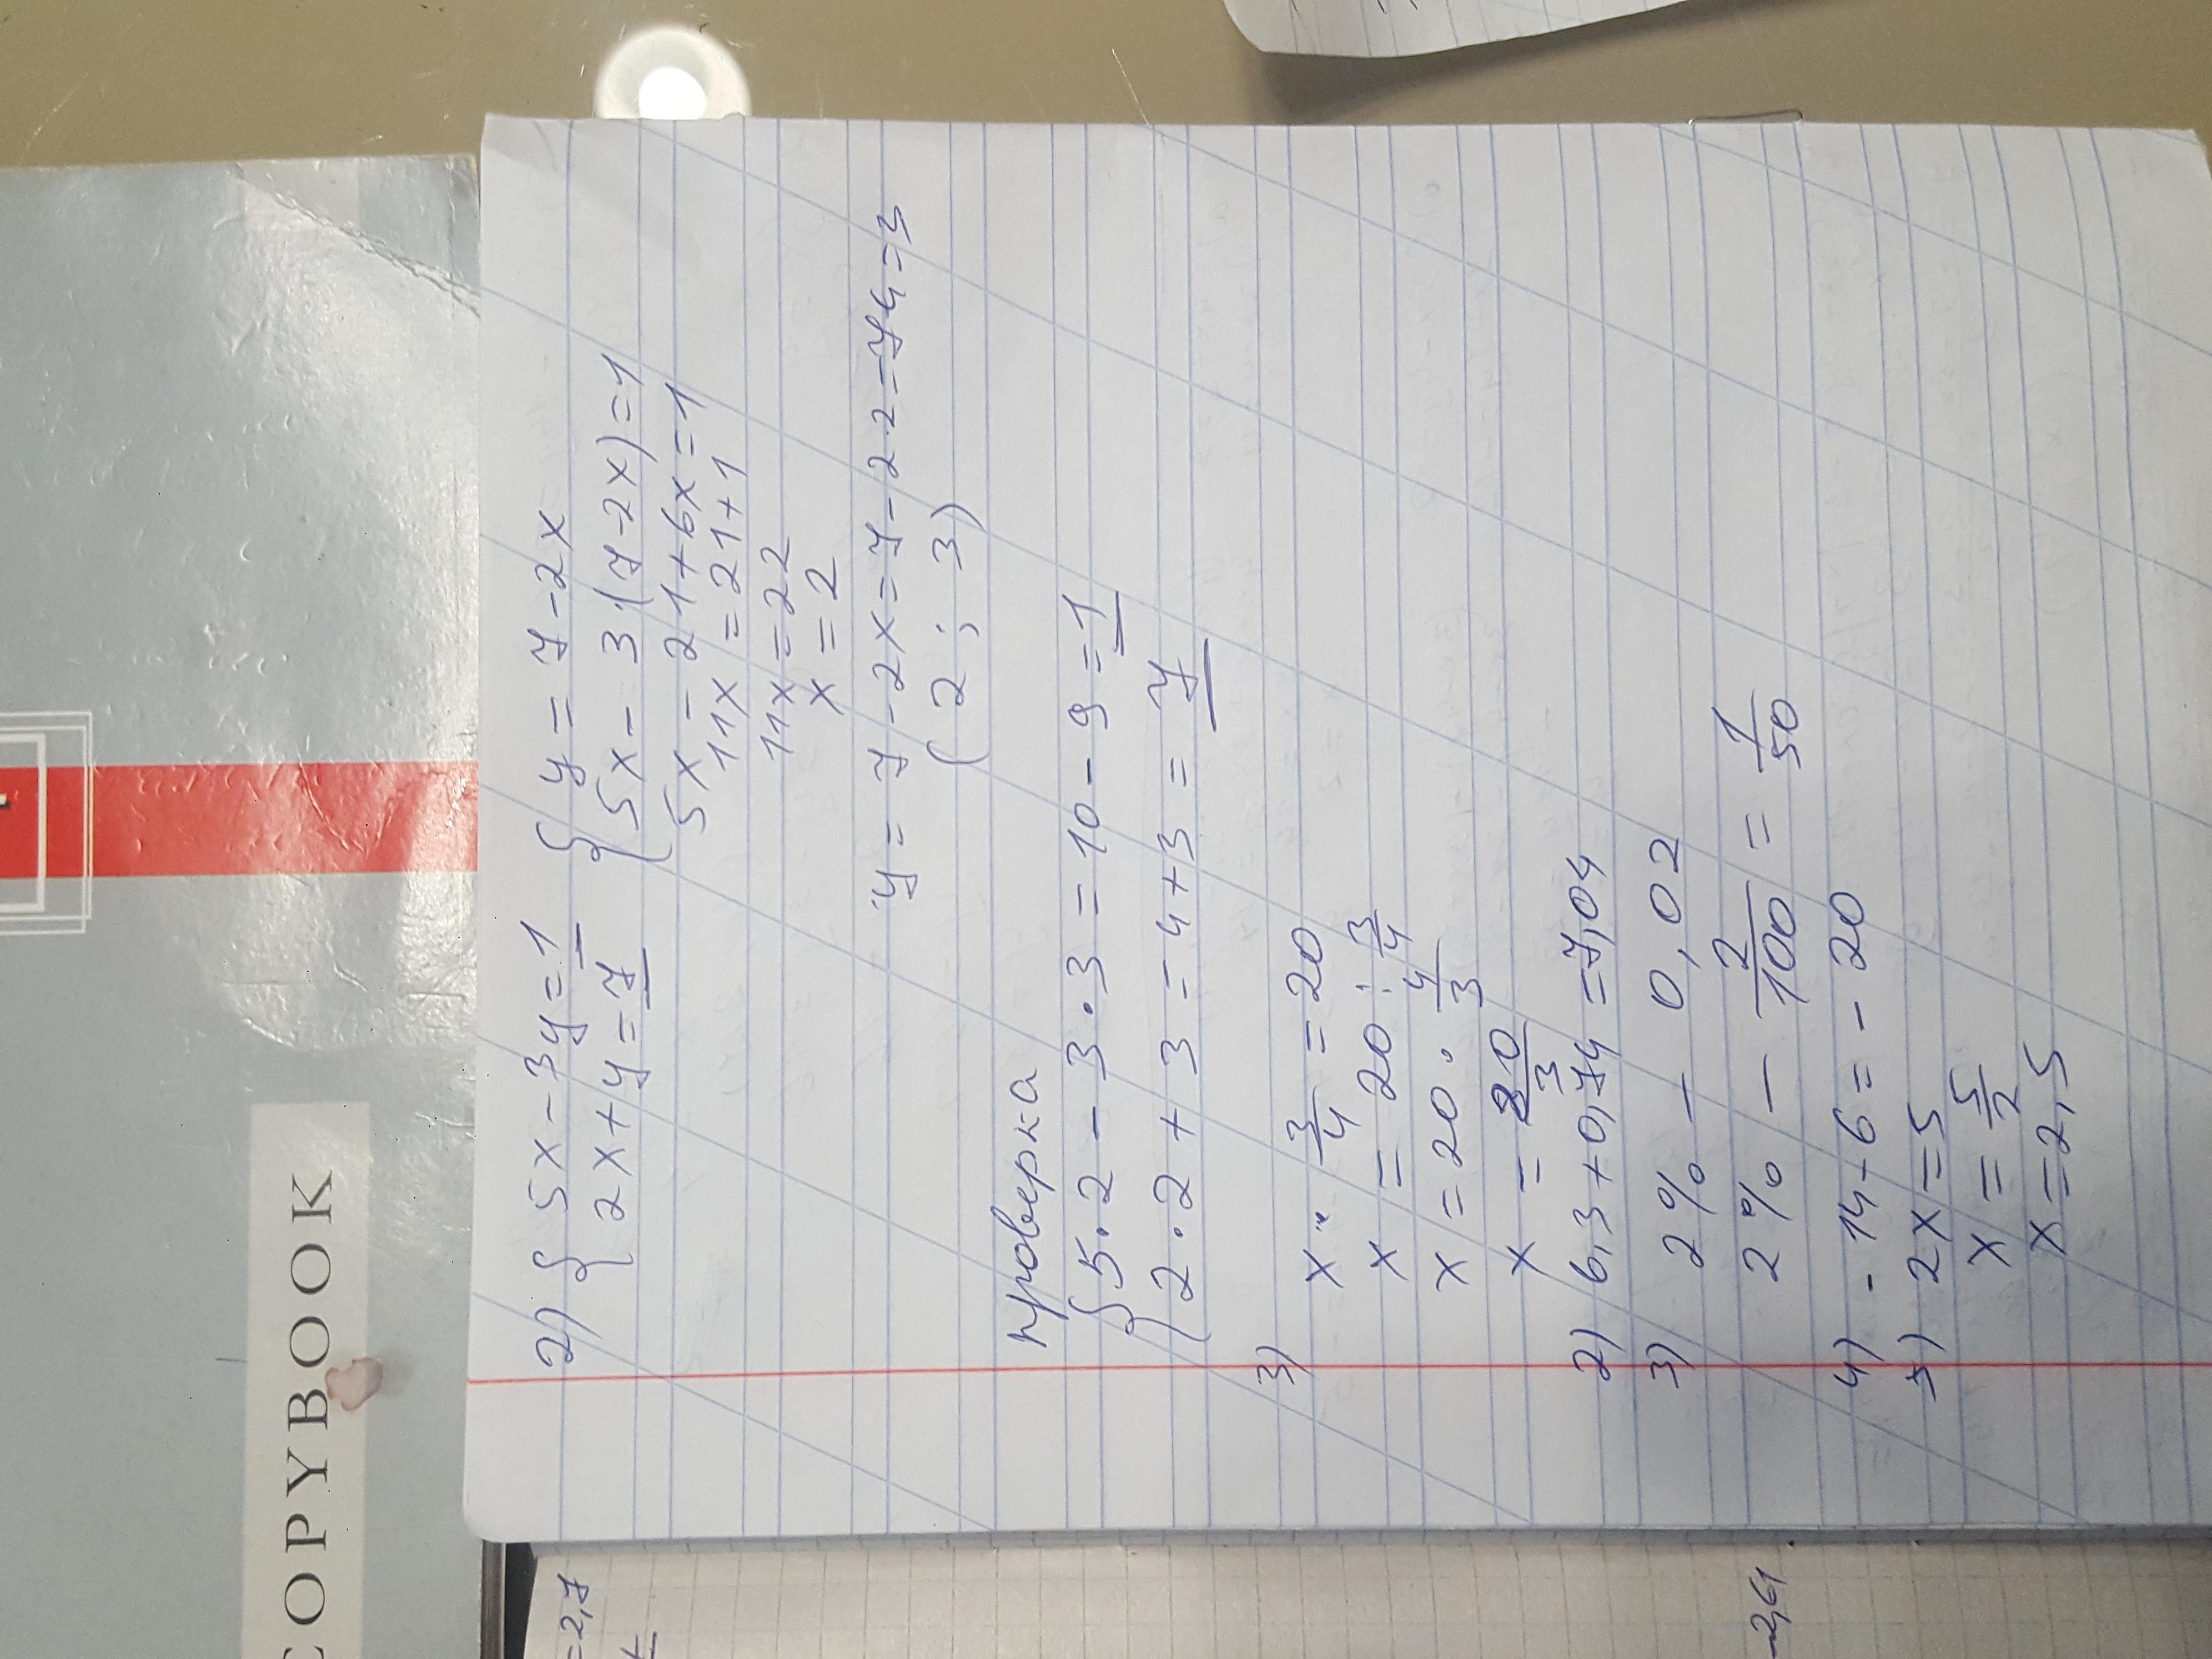 2) { 5x - 3y = 1 { y = 7 - 2x
2x + y = 7 5x - 3·(7 - 2x) = 1
5x - 21 + 6x = 1
11x = 21 + 1
11x = 22
x = 2
y = 7 - 2x = 7 - 2·2 = 7-4 = 3
(2 ; 3)
проверка
{ 5·2 - 3·3 = 10 - 9 = 1
2·2 + 3 = 4 + 3 = 7
3)
x · 3/4 = 20
x = 20 : 3/4
x = 20 · 4/3
x = 80/3
2) 6,3 + 0,74 = 7,04
3) 2% – 0,02
2% – 2/100 = 1/50
4) - 14 - 6 = - 20
5) 2x = 5
x = 5/2
x = 2,5
COPYBOOK
= 2,7